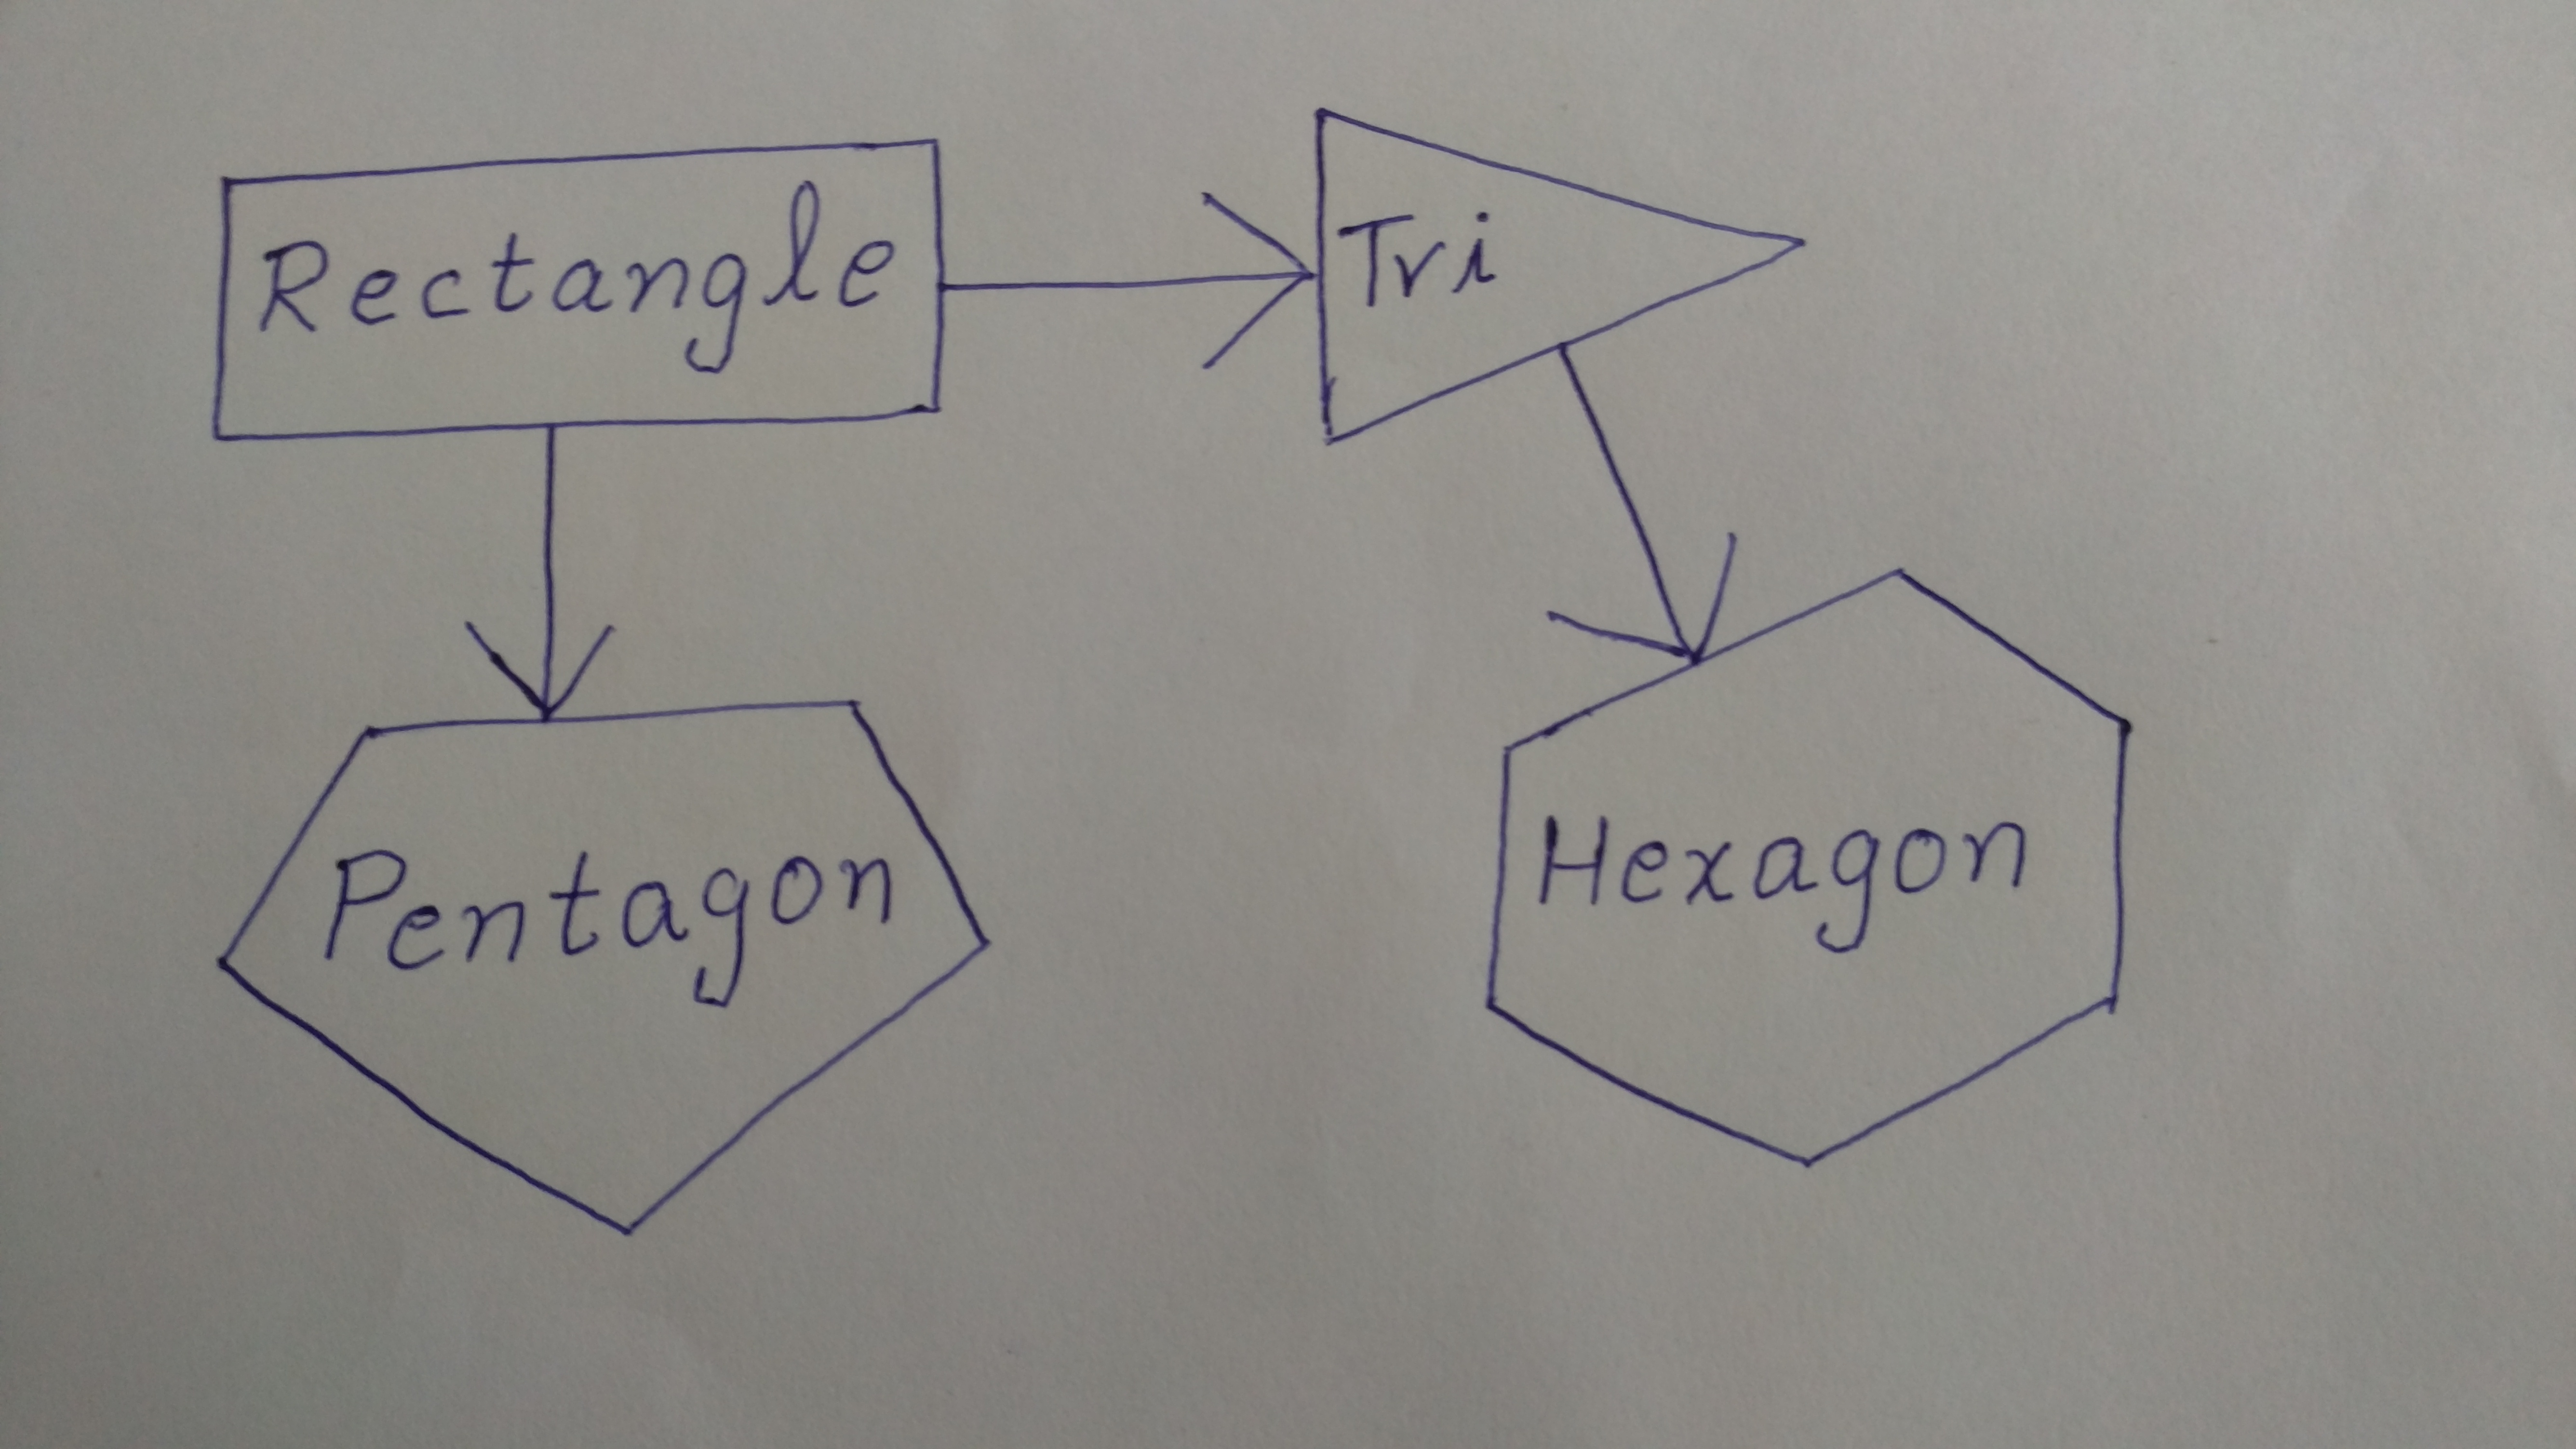 Rectangle
Tri
Pentagon
Hexagon